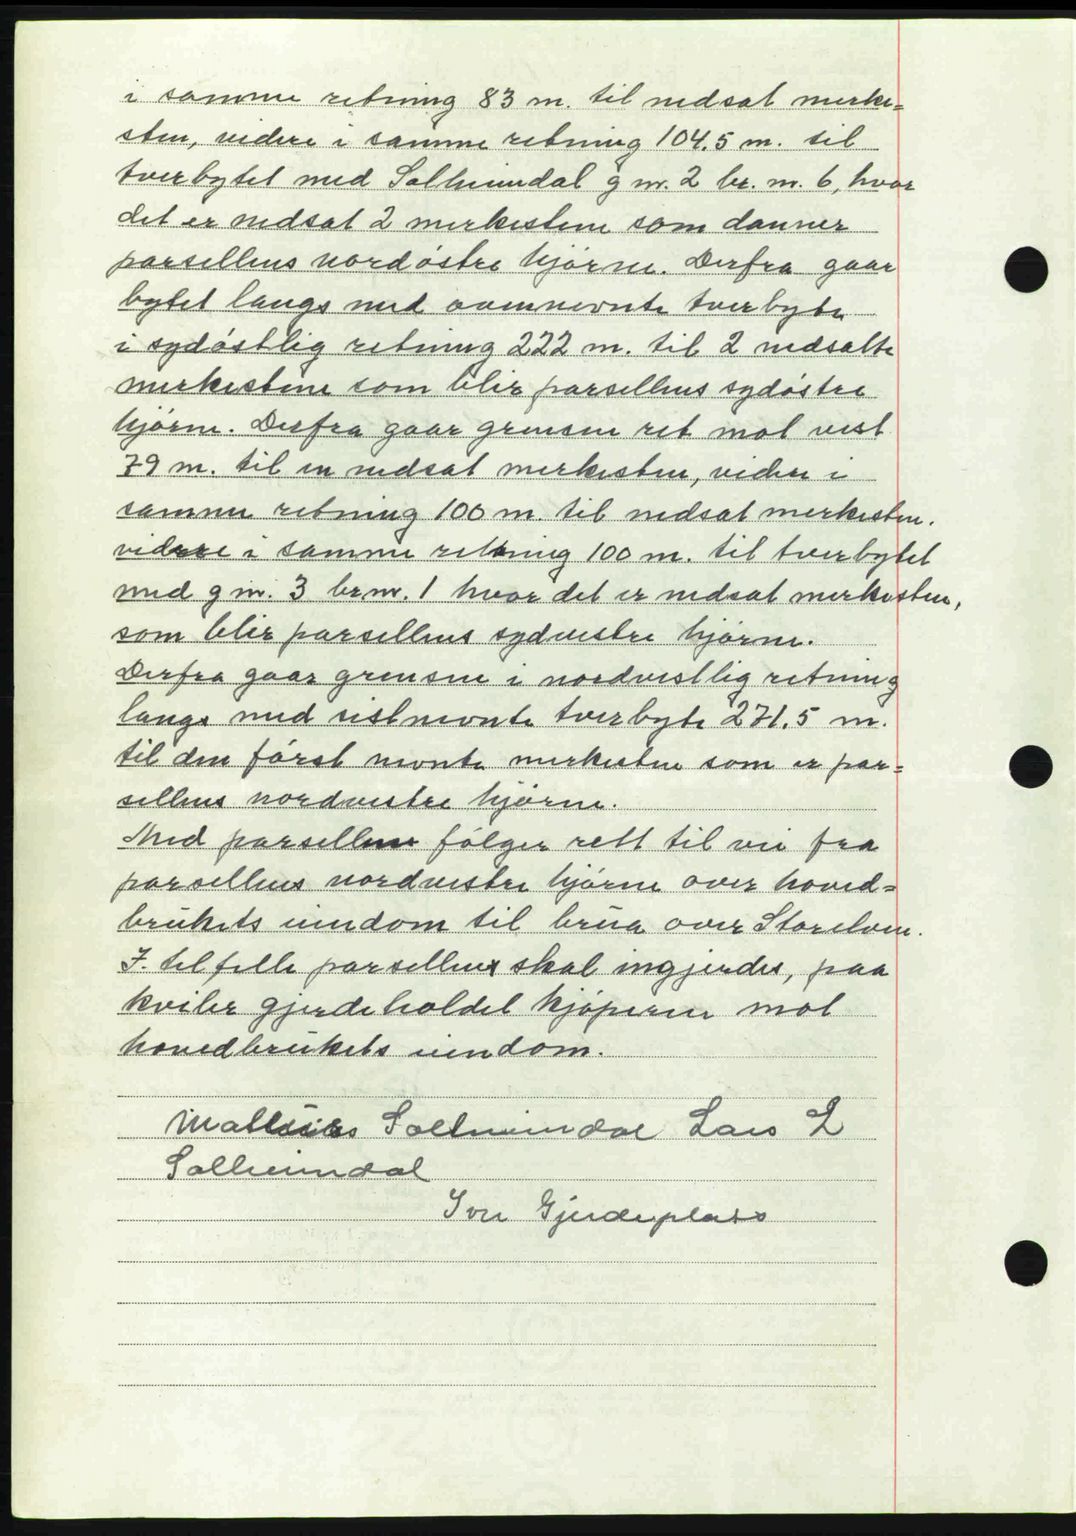 i samme retning 83 m. til nedsat merke=
sten, videre i samme retning 104.5 m. til
tverbytet med Solheimdal g nr. 2 br. nr. 6, hvor
det er nedsat 2 merkestene som danner
parsellens nordöstre hjörne. Derfra gaar
bytet langs med ovennevnte tverbyte
i sydöstlig retning 222 m. til 2 nedsatte
merkestene som blir parsellens sydöstre
hjörne. Derfra gaar grensen ret mot vest
79 m. til en nedsat merkesten, videre i
samme retning 100 m. til nedsat merkesten.
videre i samme retning 100 m. til tverbytet
med g nr. 3 br nr. 1 hvor det er nedsat merkesten,
som blir parsellens sydvestre hjörne.
Derfra gaar grensene i nordvestlig retning
langs med sistnevnte tverbyte 271.5 m.
til den först nevnte merkesten som er par=
sellens nordvestre hjörne.
Med parsellen fölger rett til vei fra
parsellens nordvestre hjörne over hoved=
brukets eiendom til brua over Storelven.
I. tilfelle parsellen skal ingjerdes, paa
kviler gjerdeholdet kjöperen mot
hovedbrukets eiendom.
Mattias Solheimdal Lars L
Solheimdal
Iver Gjerdeplass